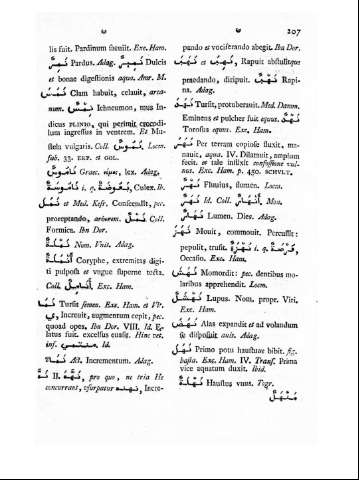 ن
ه
207
lis fuit. Pardinum fæuiit. Exc. Ham.
نمر Pardus. Adag. نمير Dulcis
et bonae digestionis aqua. Amr. M.
نمس Clam habuit, celauit, arca-
num. نمس Ichneumon, mus In-
dicus PLINIO, qui perimit crocodi-
lum ingressus in ventrem. Et Mu-
stela vulgaris. Coll. نموس. Locm.
fab. 33. ERP. et GOL.
ناموس Graec. lex. Adag.
ناموسة i. q. بعوضة, Culex. Ib.
نمل et Med. Kesr. Conscendit, pec.
proreptando, arborem. نمل Coll.
Formica. Ibn Dor.
نملة Nom. Vnit. Adag.
أنملة Coryphe, extremitas digi-
ti pulposa et vngue superne tecta.
Coll. أنامل Exc. Ham.
نما Tursit semen. Exc. Ham. et Vlt.
ي, Increuit, augmentum cepit, pec.
quoad opes, Ibn Dor. VIII. Id. E-
latus fuit. excessus euasit. Hinc vet.
inf. منتمى Id.
نماء Act. Incrementum. Adag.
نه II. نهنه, pro quo, ne tria He
concurrant, usurpatur نهنه, Incre-
pando et vociferando abegit. Ibn Dor.
نهب et نهب, Rapuit abstulitque
praedando, diripuit. نهب Rapi-
na. Adag.
نهد Tursit, protuberauit. Med. Damm.
Eminens et pulcher fuit equus. نهد
Torosus equus. Exc. Ham.
نهر Per terram copiose fluxit, ma-
nauit, aqua. IV. Dilatauit, amplum
fecit. et tale instituit confossione vul-
nus. Exc. Ham. p. 450. SCHVLT.
نهر Fluuius, flumen. Locm.
نهر Id. Coll. أنهار. Mau.
نهار Lumen. Dies. Adag.
نهز Mouit, commouit. Percussit:
pepulit, trusit. نهزة i. q. فرصة,
Occasio. Exc. Ham.
نهش Momordit: pec. dentibus mo-
laribus apprehendit. Locm.
نهشل Lupus. Nom. propr. Viri.
Exc. Ham.
نهض Alas expandit et ad volandum
se disposuit auis. Adag.
نهل Primo potu haustuue bibit. fig.
hasta. Exc. Ham. IV. Trans. Prima
vice aquatum duxit. Ibid.
نهلة Haustus vnus. Togr.
منهل